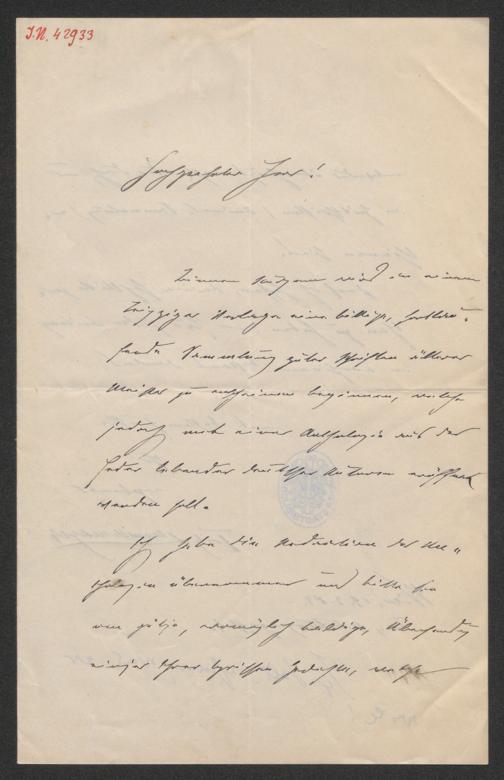 I.N. 42933
Hochgeehrter Herr!
Binnen Kurzem wird in einem
Leipziger Verlage eine billige, fortlau-
fende Sammlung guter Schriften älterer
Meister zu erscheinen beginnen, welche
jedoch mit einer Anthologie aus der
Feder lebender deutscher Autoren eröffnet
werden soll.
Ich habe die Redaction der An-
thologie übernommen und bitte Sie
um gütige, womöglich baldige, Übersendung
einiger Ihrer lyrischen Gedichte, welche